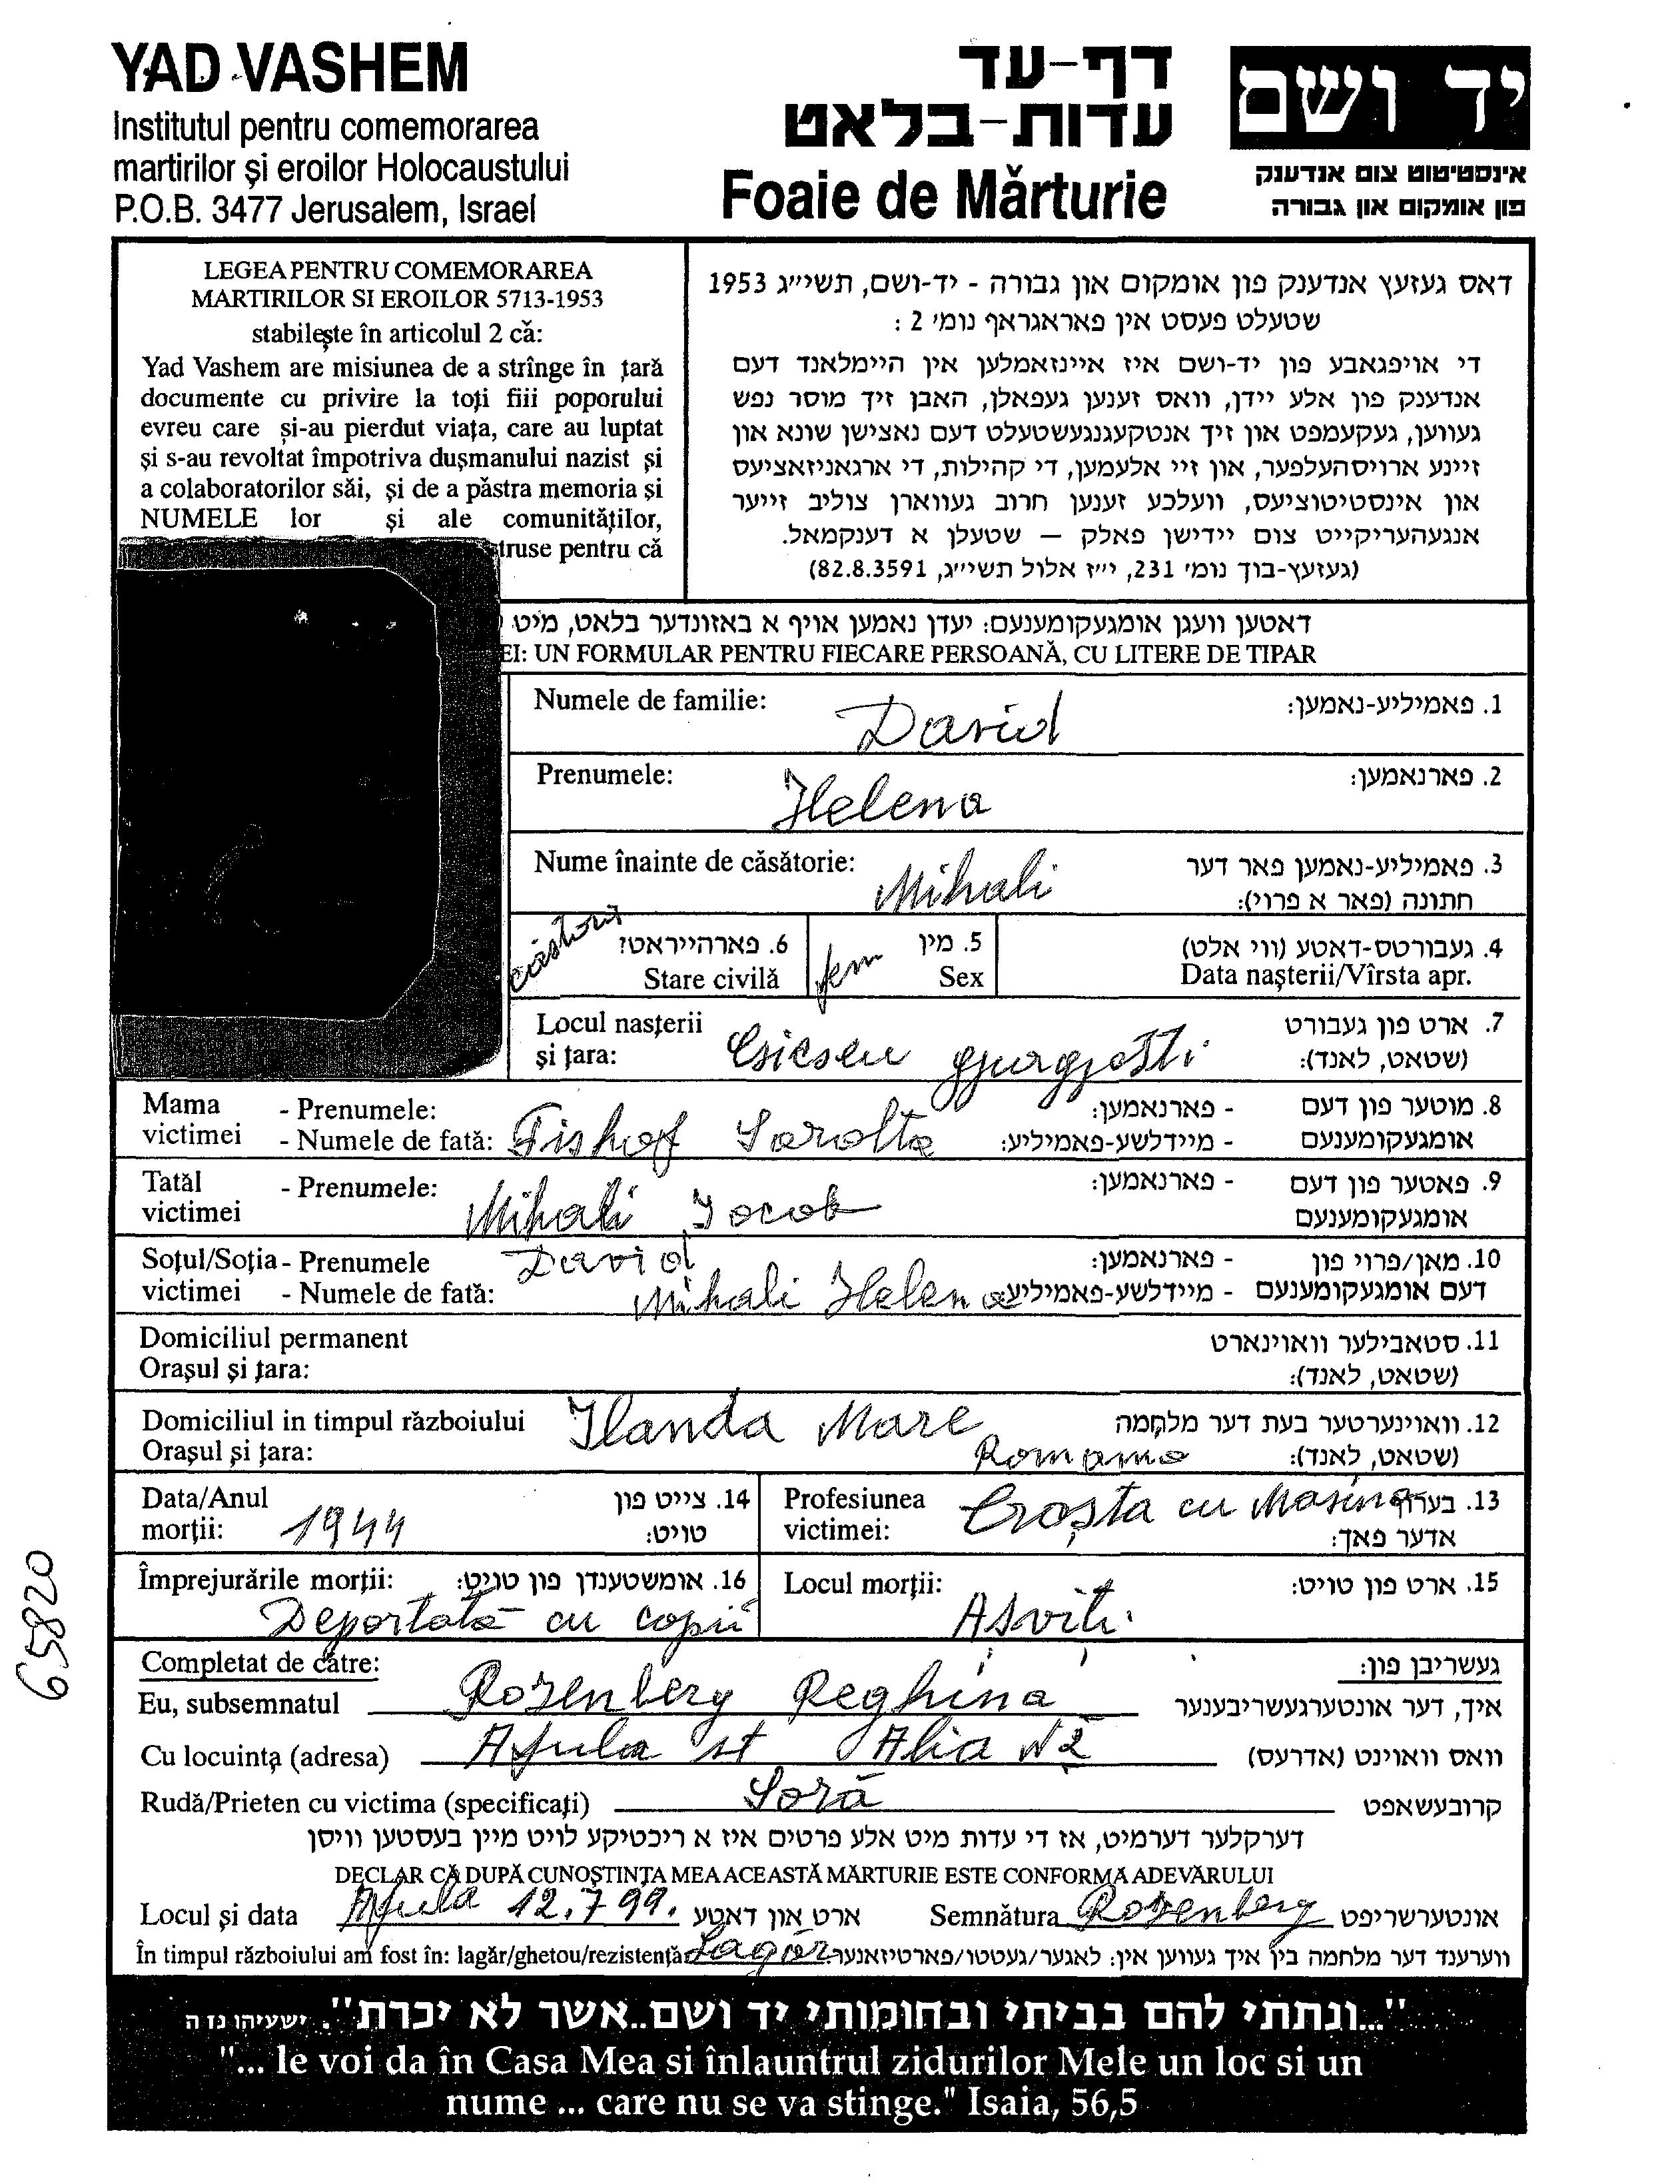 YAD VASHEM
Institutul pentru comemorarea
martirilor și eroilor Holocaustului
P.O.B. 3477 Jerusalem, Israel
דף-עד
עדות-בלאט
Foaie de Mărturie
יד ושם
אינסטיטוט צום אנדענק
פון אומקום און גבורה
LEGEA PENTRU COMEMORAREA
MARTIRILOR SI EROILOR 5713-1953
stabilește în articolul 2 că:
Yad Vashem are misiunea de a strînge în țară
documente cu privire la toți fiii poporului
evreu care și-au pierdut viața, care au luptat
și s-au revoltat împotriva dușmanului nazist și
a colaboratorilor săi, și de a păstra memoria și
NUMELE lor și ale comunităților,
truse pentru că
דאס געזעץ אנדענק פון אומקום און גבורה - יד-ושם, תשי״ג 1953
שטעלט פעסט אין פאראגראף נומ׳ 2 :
די אויפגאבע פון יד-ושם איז איינזאמלען אין היימלאנד דעם
אנדענק פון אלע יידן, וואס זענען געפאלן, האבן זיך מוסר נפש
געווען, געקעמפט און זיך אנטקעגנגעשטעלט דעם נאצישן שונא און
זיינע ארויסהעלפער, און זיי אלעמען, די קהילות, די ארגאניזאציעס
און אינסטיטוציעס, וועלכע זענען חרוב געווארן צוליב זייער
אנגעהעריקייט צום יידישן פאלק — שטעלן א דענקמאל.
(געזעץ-בוך נומ׳ 231, י״ז אלול תשי״ג, 82.8.3591)
דאטען וועגן אומגעקומענעם: יעדן נאמען אויף א באזונדער בלאט, מיט
EI: UN FORMULAR PENTRU FIECARE PERSOANĂ, CU LITERE DE TIPAR
Numele de familie: David 1. פאמיליע-נאמען:
Prenumele: Helena 2. פארנאמען:
Nume înainte de căsătorie: Mihali 3. פאמיליע-נאמען פאר דער
חתונה (פאר א פרוי):
6. פארהייראט? fem 5. מין 4. געבורטס-דאטע (ווי אלט)
Stare civilă Sex Data nașterii/Vîrsta apr.
Locul nașterii 7. ארט פון געבורט
și țara: (שטאט, לאנד):
Mama - Prenumele: - פארנאמען: 8. מוטער פון דעם
victimei - Numele de fată: Fishof Sarolta - מיידלשע-פאמיליע: אומגעקומענעם
Tatăl - Prenumele: - פארנאמען: 9. פאטער פון דעם
victimei Mihali Iacob אומגעקומענעם
Soțul/Soția - Prenumele David - פארנאמען: 10. מאן/פרוי פון
victimei - Numele de fată: Mihali Helena - מיידלשע-פאמיליע דעם אומגעקומענעם
Domiciliul permanent 11. סטאבילער וואוינארט
Orașul și țara: (שטאט, לאנד):
Domiciliul in timpul războiului Ilanda Mare 12. וואוינערטער בעת דער מלחמה
Orașul și țara: Romania (שטאט, לאנד):
Data/Anul 14. צייט פון
morții: 1944 טויט:
Profesiunea Croșta cu Masina 13. בערוף
victimei: אדער פאך:
Împrejurările morții: 16. אומשטענדן פון טויט:
Deportată cu copii
Locul morții: 15. ארט פון טויט:
Asviți
Completat de către: געשריבן פון:
Eu, subsemnatul Rozenberg Reghina איך, דער אונטערגעשריבענער
Cu locuința (adresa) Afula st Alia N2 וואס וואוינט (אדרעס)
Rudă/Prieten cu victima (specificați) Soră קרובעשאפט
דערקלער דערמיט, אז די עדות מיט אלע פרטים איז א ריכטיקע לויט מיין בעסטען וויסן
DECLAR CĂ DUPĂ CUNOȘTINȚA MEA ACEASTĂ MĂRTURIE ESTE CONFORMA ADEVĂRULUI
Locul și data Afula 12.7 99. ארט און דאטע Semnătura Rozenberg אונטערשריפט
În timpul războiului am fost în: lagăr/ghetou/rezistență Lagăr ווערענד דער מלחמה בין איך געווען אין: לאגער/געטטו/פארטיזאנער
65820
"...ונתתי להם בביתי ובחומותי יד ושם..אשר לא יכרת". ישעיהו נז ה
"... le voi da în Casa Mea si înlauntrul zidurilor Mele un loc si un
nume ... care nu se va stinge." Isaia, 56,5